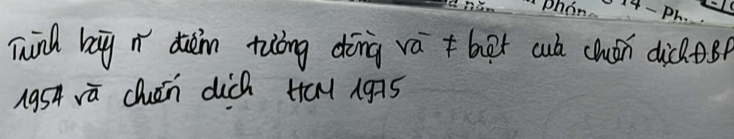 phón 14 - Ph.
Trình bày n~ điểm tương đồng và ≠ biệt của chiến dịch Đ.B.P
1954 và chiến dịch HCM 1975